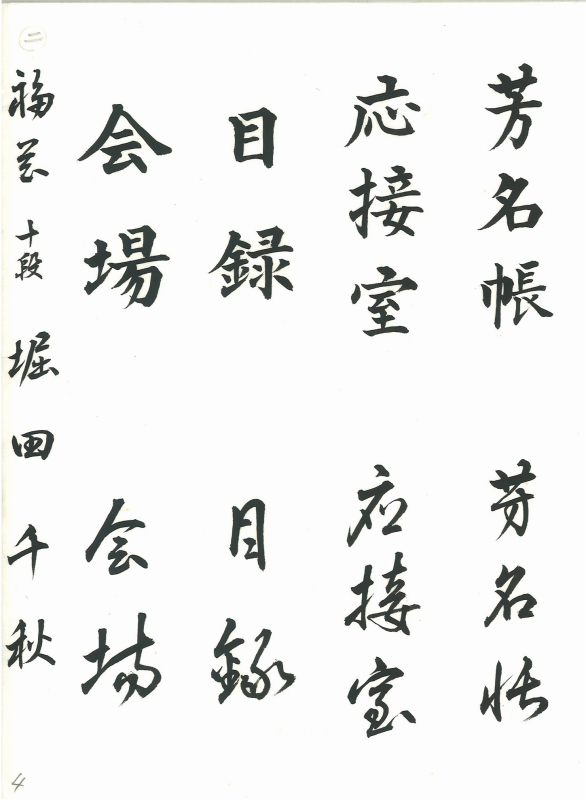 芳名帳 芳名帳
応接室 応接室
目録 目録
会場 会場
二
福岡 十段 堀田千秋
4